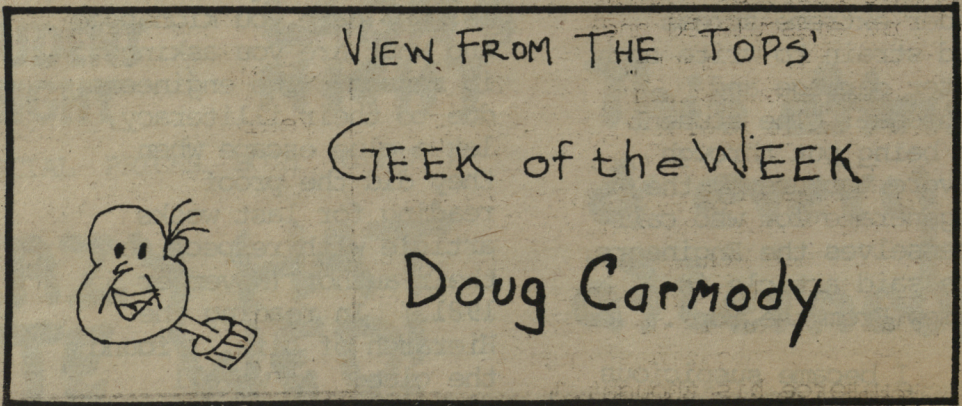 VIEW FROM THE TOPS'
GEEK of the WEEK
Doug Carmody